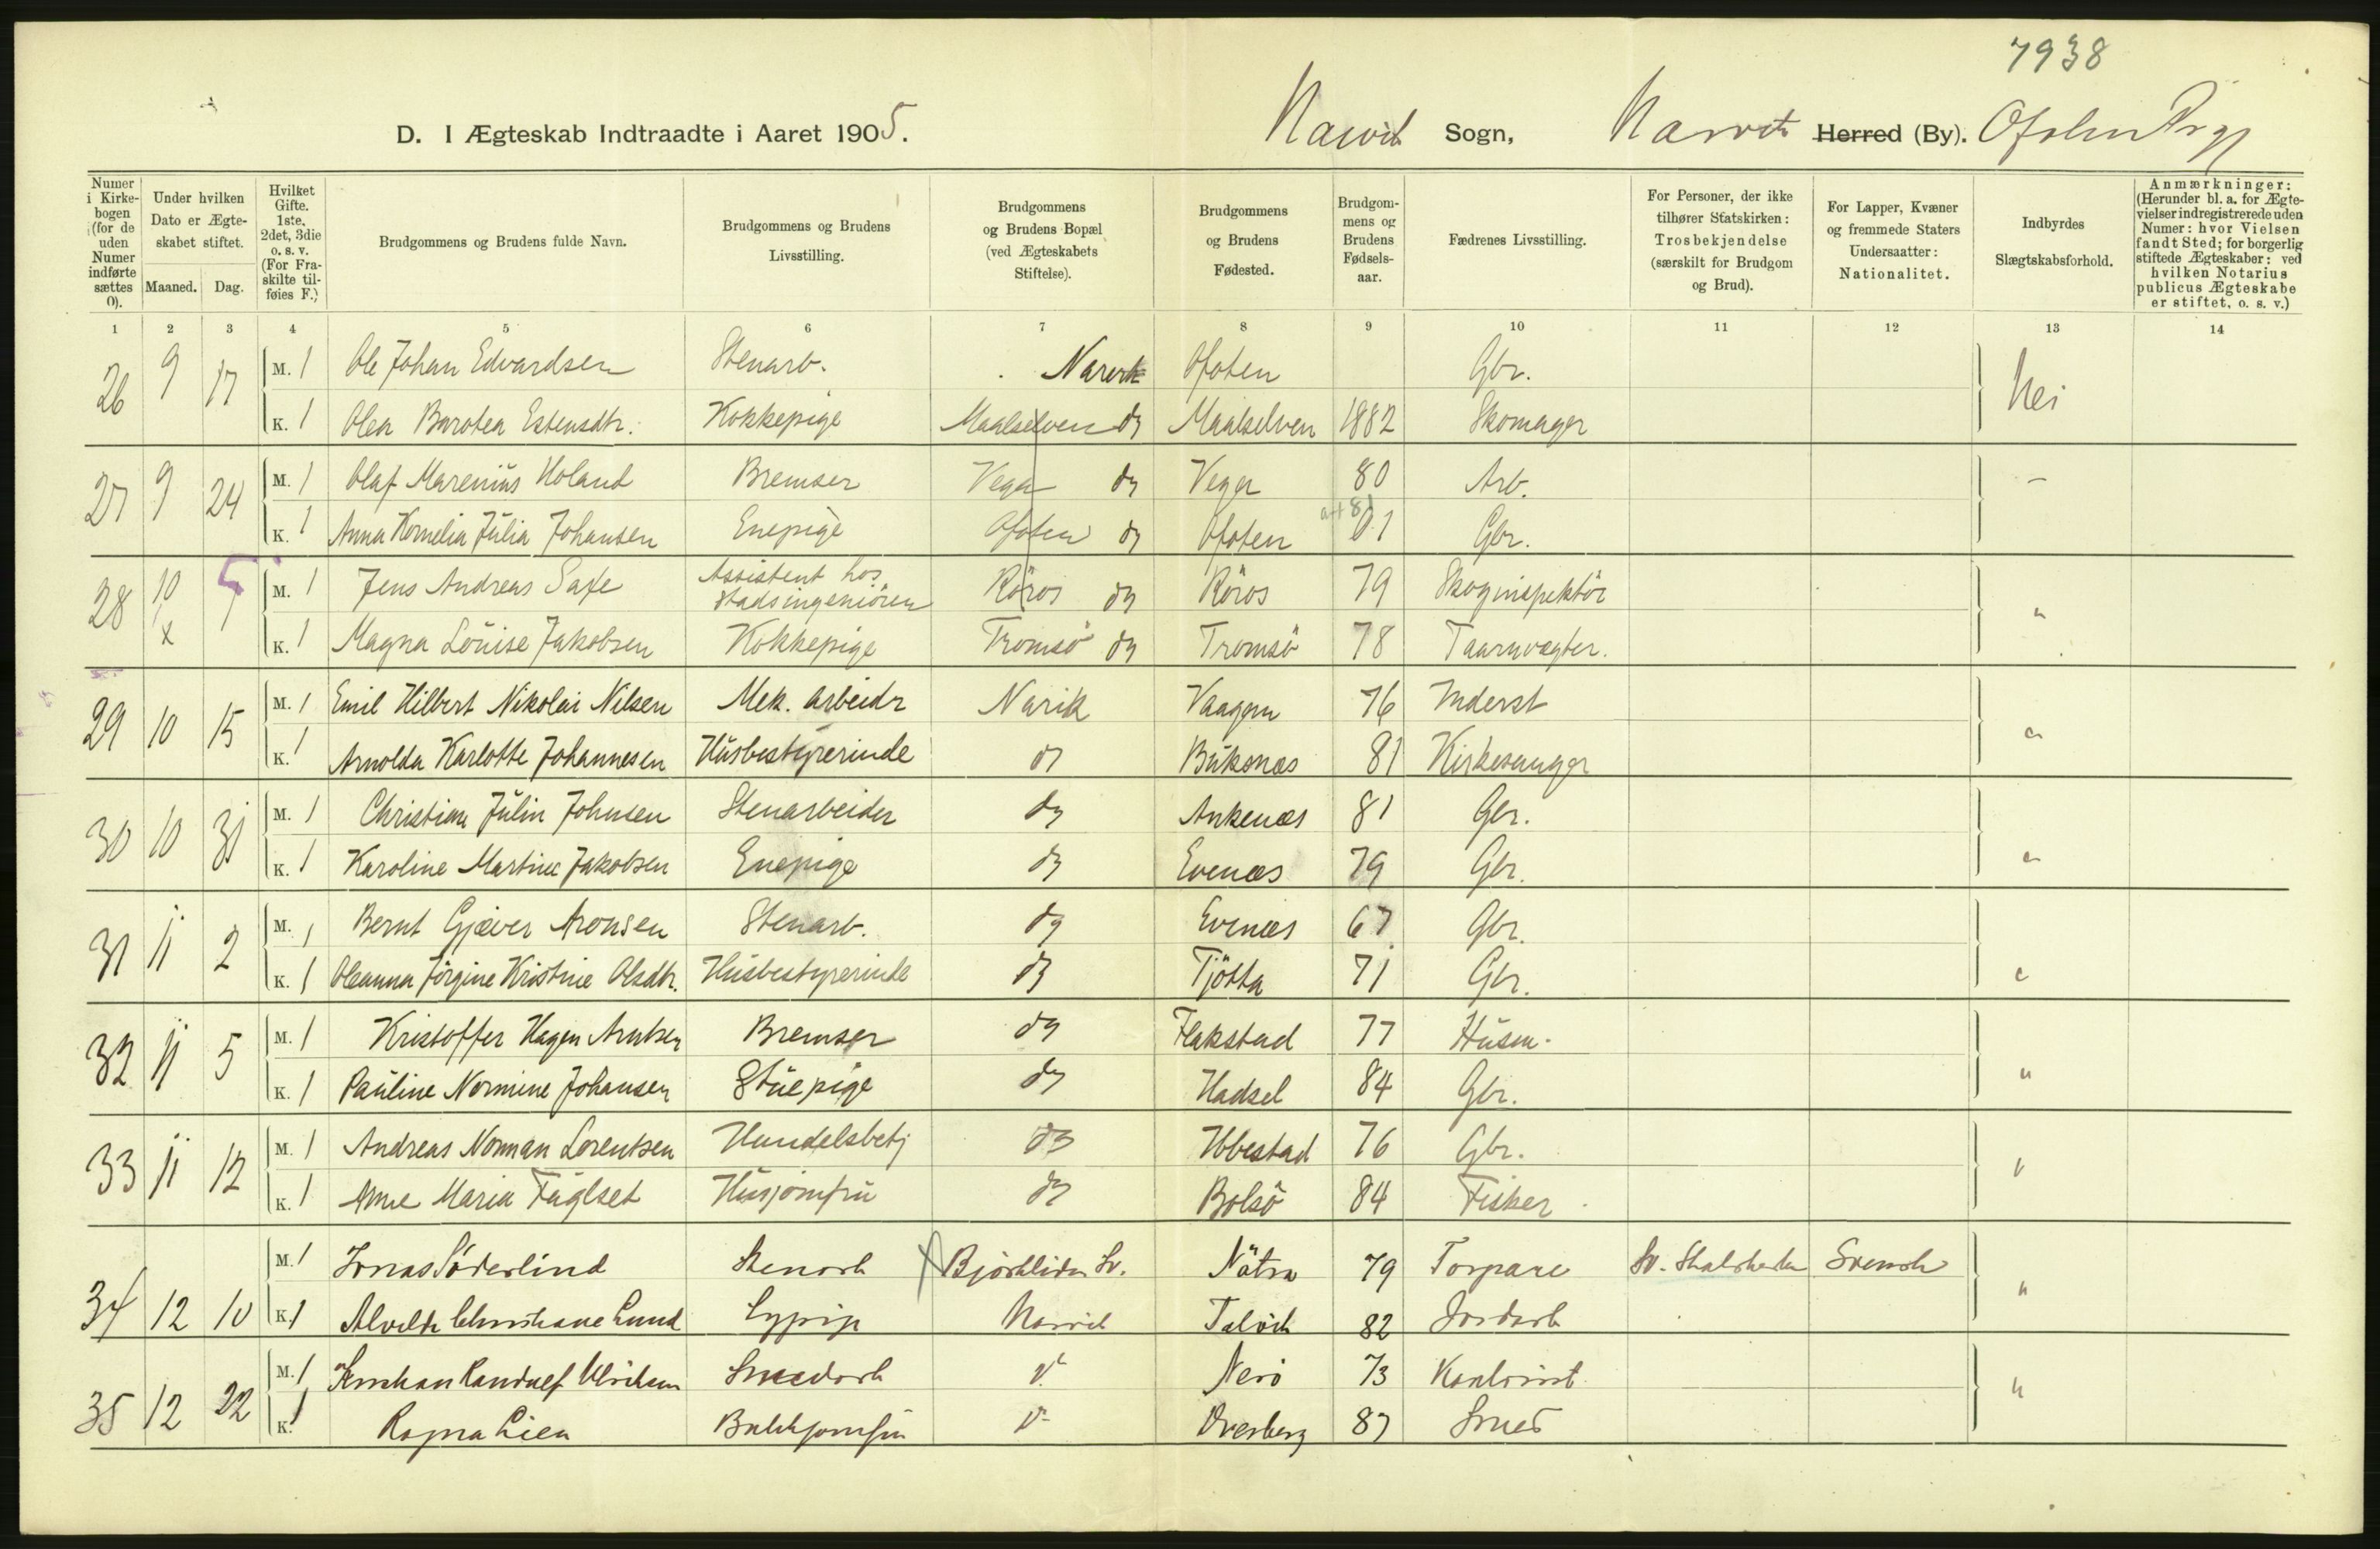 7938
D. I Ægteskab Indtraadte i Aaret 1905.
Narvik Sogn, Narvik Herred (By). Ofoten
Numer i Kirkebogen (for de uden Numer indførte sættes 0).
Under hvilken Dato er Ægteskabet stiftet.
Maaned. Dag.
Hvilket Gifte. 1ste, 2det, 3die o. s. v. (For Fraskilte tilføies F.)
Brudgommens og Brudens fulde Navn.
Brudgommens og Brudens Livsstilling.
Brudgommens og Brudens Bopæl (ved Ægteskabets Stiftelse).
Brudgommens og Brudens Fødested.
Brudgommens og Brudens Fødselsaar.
Fædrenes Livsstilling.
For Personer, der ikke tilhører Statskirken: Trosbekjendelse (særskilt for Brudgom og Brud).
For Lapper, Kvæner og fremmede Staters Undersaatter: Nationalitet.
Indbyrdes Slægtskabsforhold.
Anmærkninger: (Herunder bl. a. for Ægtevielser indregistrerede uden Numer: hvor Vielsen fandt Sted; for borgerlig stiftede Ægteskaber: ved hvilken Notarius publicus Ægteskabe er stiftet, o. s. v.)
1 2 3 4 5 6 7 8 9 10 11 12 13 14
26 9 17 M. 1 Ole Johan Edvardsen Stenarb. Narvik Ofoten Gbr. Nei
K. 1 Olea Barotea Estensdtr. Kokkepige Maalselven do Maalselven 1882 Skomager
27 9 24 M. 1 Olaf Marenius Holand Bremser Vega do Vega 80 Arb. –
K. 1 Anna Kornelia Julia Johansen Enepige Ofoten do Ofoten 81 Gbr.
28 10 M. 1 Jens Andreas Saxe Assistent hos Stadsingeniören Röros do Röros 79 Skoginspektör "
x K. 1 Magna Louise Jakobsen Kokkepige Tromsö do Tromsö 78 Taarnvægter.
29 10 15 M. 1 Emil Hilbert Nikolai Nilsen Mek. arbeidr Narik Vaagan 76 Inderst "
K. 1 Arnolda Karlotte Johannesen Husbestyrerinde do Buksnæs 81 Kirkesanger
30 10 31 M. 1 Christian Julin Johnsen Stenarbeider do Ankenæs 81 Gbr. "
K. 1 Karoline Martine Jakobsen Enepige do Evenæs 79 Gbr.
31 11 2 M. 1 Bernt Gjæver Aronsen Stenarb. do Evenæs 67 Gbr. "
K. 1 Oleanna Jörgine Kristine Olsdtr. Husbestyrerinde do Tjötta 71 Gbr.
32 11 5 M. 1 Kristoffer Hagen Arntsen Bremser do Flakstad 77 Husm. "
K. 1 Pauline Normine Johansen Stuepige do Hadsel 84 Gbr.
33 11 12 M. 1 Andreas Norman Lorentsen Handelsbetj do Ibbestad 76 Gbr. "
K. 1 Anne Maria Fuglset Husjomfru do Bolsö 84 Fisker
34 12 10 M. 1 Jonas Söderlind Stenarb Björkliden Sv. Nätra 79 Torpare Sv. Statskirken Svensk "
K. 1 Alvilde Christiane Lund Narvik Talvik 82 Jordarb
35 12 22 M. 1 Kristian Randulf Ulriksen Smedarb Do Nerö 73 "
K. 1 Ragna Lien Do 87 Smed